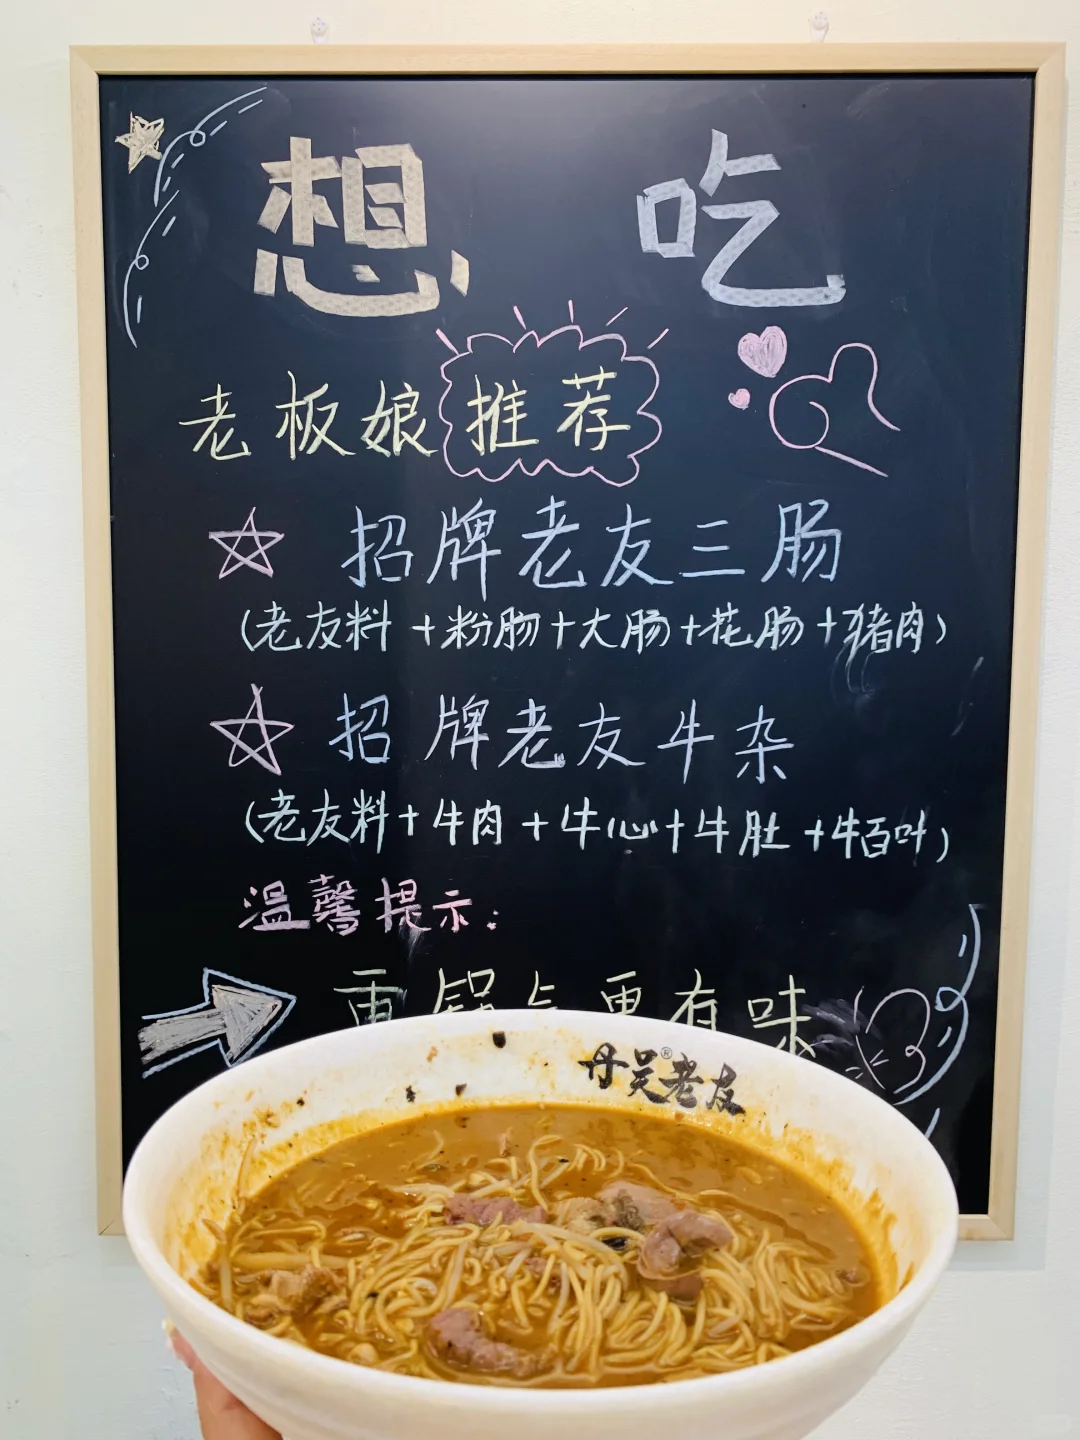 想 吃
老板娘推荐
招牌老友三肠
(老友料+粉肠+大肠+花肠+猪肉)
招牌老友牛杂
(老友料+牛肉+牛心+牛肚+牛百叶)
温馨提示:
重锅气更有味
丹吴®老友